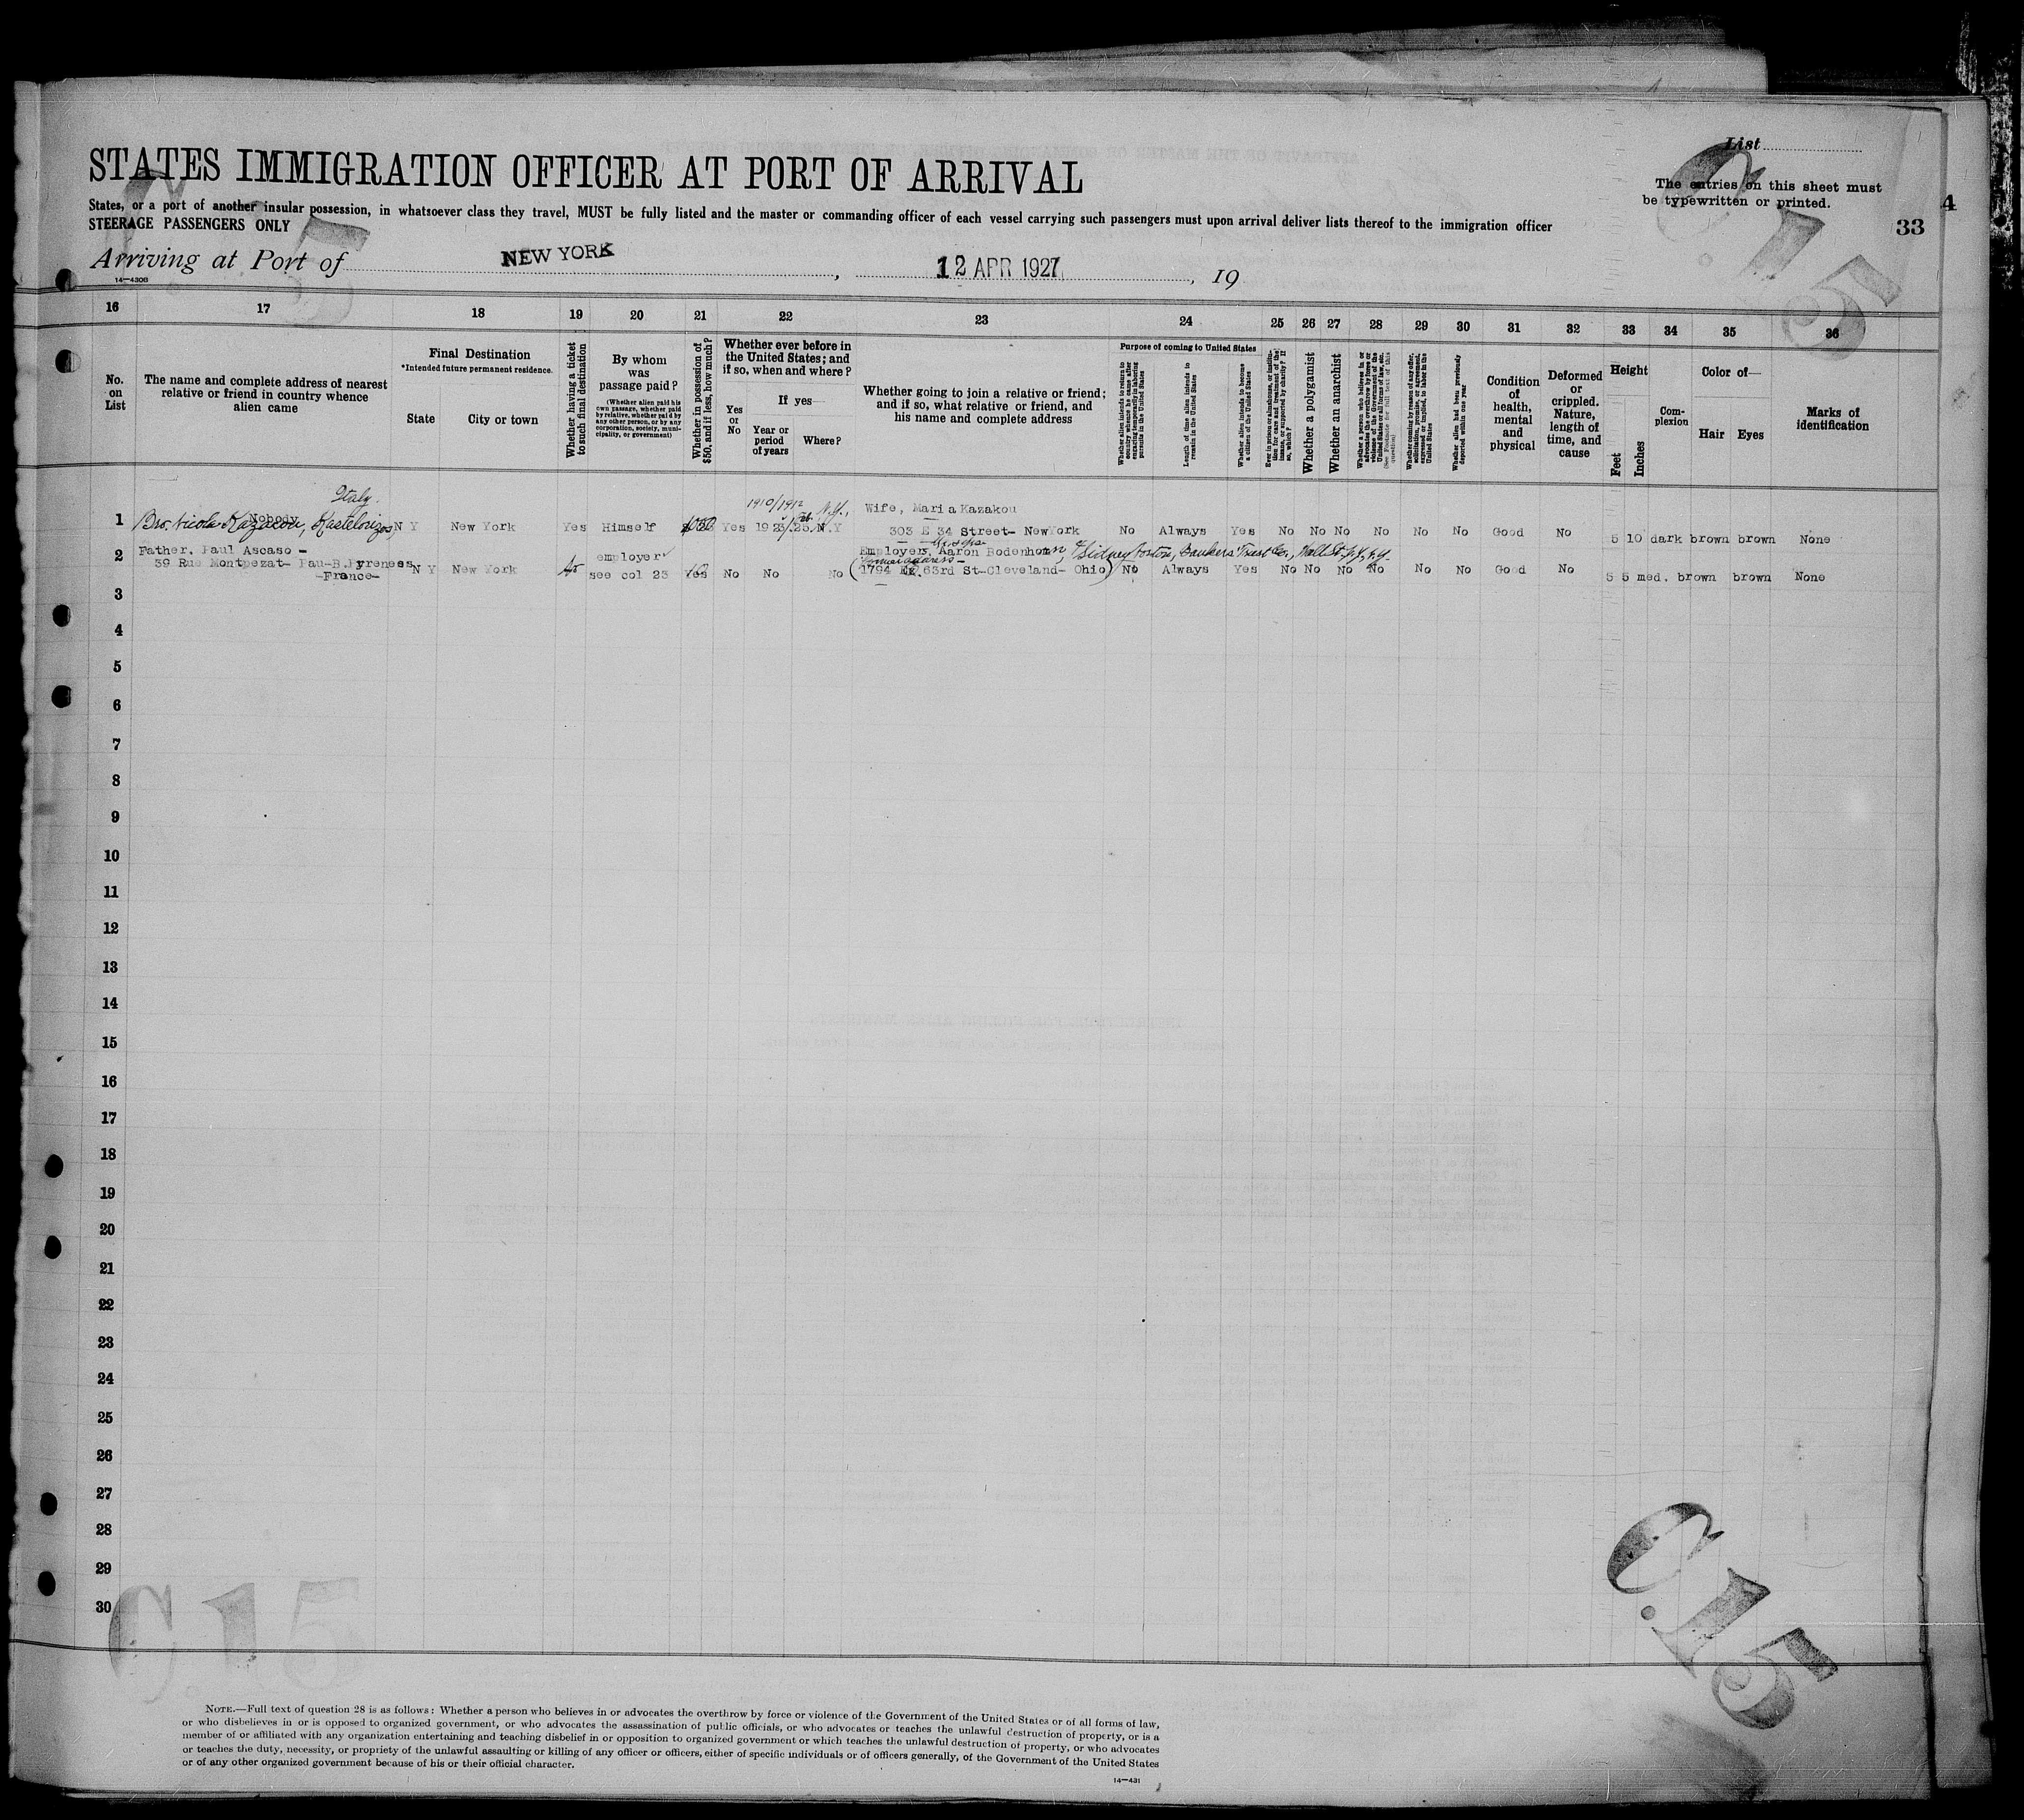 List
STATES IMMIGRATION OFFICER AT PORT OF ARRIVAL
The entries on this sheet must
be typewritten or printed.
4
33
States, or a port of another insular possession, in whatsoever class they travel, MUST be fully listed and the master or commanding officer of each vessel carrying such passengers must upon arrival deliver lists thereof to the immigration officer
STEERAGE PASSENGERS ONLY
Arriving at Port of NEW YORK, 12 APR 1927, 19
14—430B
C.15
16 17 18 19 20 21 22 23 24 25 26 27 28 29 30 31 32 33 34 35 36
No. on List
The name and complete address of nearest
relative or friend in country whence
alien came
Final Destination
*Intended future permanent residence.
State
City or town
Whether having a ticket
to such final destination
By whom
was
passage paid?
(Whether alien paid his
own passage, whether paid
by relative, whether paid by
any other person, or by any
corporation, society, muni-
cipality, or government)
Whether in possession of
$50, and if less, how much?
Whether ever before in
the United States; and
if so, when and where?
Yes
or
No
If yes—
Year or
period
of years
Where?
Whether going to join a relative or friend;
and if so, what relative or friend, and
his name and complete address
Purpose of coming to United States
Whether alien intends to return to
country whence he came after
engaging temporarily in laboring
pursuits in the United States
Length of time alien intends to
remain in the United States
Whether alien intends to become
a citizen of the United States
Ever in prison or almshouse, or institu-
tion for care and treatment of the
insane, or supported by charity? If
so, which?
Whether a polygamist
Whether an anarchist
Whether a person who believes in or
advocates the overthrow by force or
violence of the Government of the
United States or all forms of law, etc.
(See Footnote for full text of this
question)
Whether coming by reason of any offer,
solicitation, promise, or agreement,
expressed or implied, to labor in the
United States
Whether alien had been previously
deported within one year
Condition
of
health,
mental
and
physical
Deformed
or
crippled.
Nature,
length of
time, and
cause
Height
Feet
Inches
Com-
plexion
Color of—
Hair
Eyes
Marks of
identification
Italy.
1910/1912 N.Y.,
Wife, Maria Kazakou
1 Bro. Nicola Kazakou, Kastelorizo, Nobody N Y New York Yes Himself Yes 1923/25. N.Y 303 E 34 Street- NewYork No Always Yes No No No No No No Good No 5 10 dark brown brown None
2 Father, Paul Ascaso -
employer
Employers, Aaron Bodenhorn, c/o Sidney Boston, Bankers Trust Co., Wall St. N.Y., N.Y.
39 Rue Montpezat- Pau-B.Pyrenees
-France-
N Y New York see col 23 Yes No No No (1794 E. 63rd St-Cleveland- Ohio) No Always Yes No No No No No No Good No 5 5 med. brown brown None
3
4
5
6
7
8
9
10
11
12
13
14
15
16
17
18
19
20
21
22
23
24
25
26
27
28
29
30
C.15
C.15
NOTE.—Full text of question 28 is as follows: Whether a person who believes in or advocates the overthrow by force or violence of the Government of the United States or of all forms of law,
or who disbelieves in or is opposed to organized government, or who advocates the assassination of public officials, or who advocates or teaches the unlawful destruction of property, or is a
member of or affiliated with any organization entertaining and teaching disbelief in or opposition to organized government or which teaches the unlawful destruction of property, or who advocates
or teaches the duty, necessity, or propriety of the unlawful assaulting or killing of any officer or officers, either of specific individuals or of officers generally, of the Government of the United States
or of any other organized government because of his or their official character.
14—431